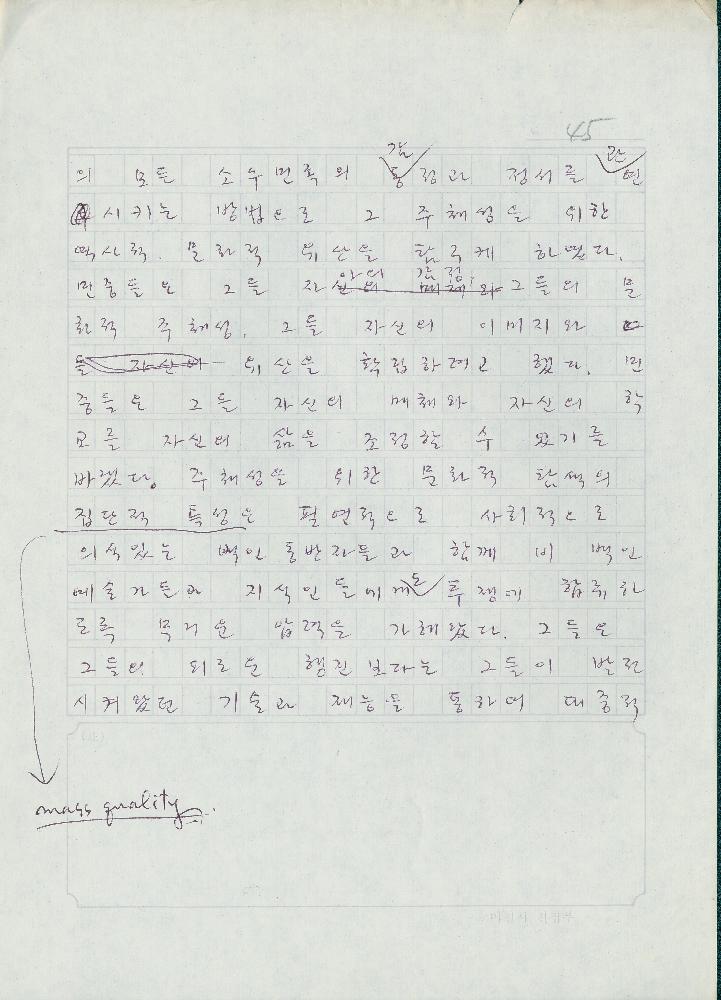 45
의 모든 소수민족의 감동정과 정서를 관련
시키는 방법으로 그 주체성을 위한
역사적, 문화적 유산을 탐구케 하였다.
민중들은 그들 자신의 그들의 문
화적 주체성, 그들 자신의 이미지와
유산을 확립하려고 했다. 민
중들은 그들 자신의 매체와 자신의 학
교를 자신의 삶을 조정할 수 있기를
바랬다. 주체성을 위한 문화적 탐색의
집단적 특성은 필연적으로 사회적으로
의식있는 백인 동반자들과 함께 비 백인
예술가들과 지식인들에게도 투쟁에 합류하
도록 무거운 압력을 가해왔다. 그들은
그들의 외로운 행진보다는 그들이 발전
시켜왔던 기술과 재능을 통하여 대중적
mass quality